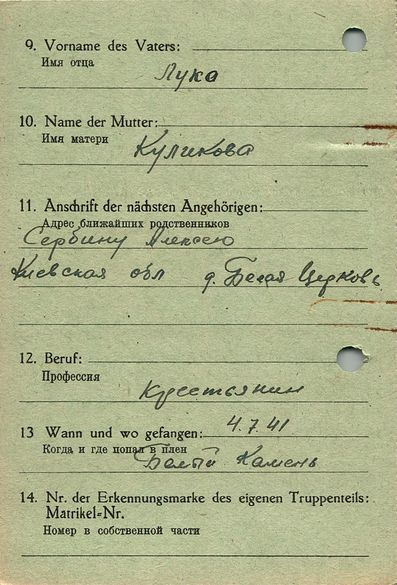 9. Vorname des Vaters:
Имя отца
Лука
10. Name der Mutter:
Имя матери
Куликова
11. Anschrift der nächsten Angehörigen:
Адрес ближайших родственников
Сербину Алексею
Киевская обл д. Белая Церковь
12. Beruf:
Профессия
крестьянин
13 Wann und wo gefangen: 4.7.41
Когда и где попал в плен
Белый Камень
14. Nr. der Erkennungsmarke des eigenen Truppenteils:
Matrikel=Nr.
Номер в собственной части